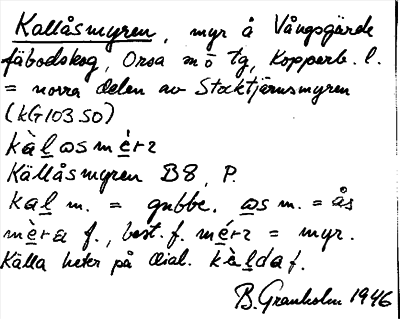 Kallåsmyren, myr å Vångsgärde
fäbodskog, Orsa sn ö tg, Kopparb. l.
= norra delen av Stocktjärnsmyren
(KG103 SO)
kàḷǫsmè̱rz
Källåsmyren B8, P.
kaḷ m. = gubbe. ǫs m. = ås
mè̱ra f., best. f. mé̱rz = myr.
Källa heter på dial. kàḷda f.
B. Granholm 1946